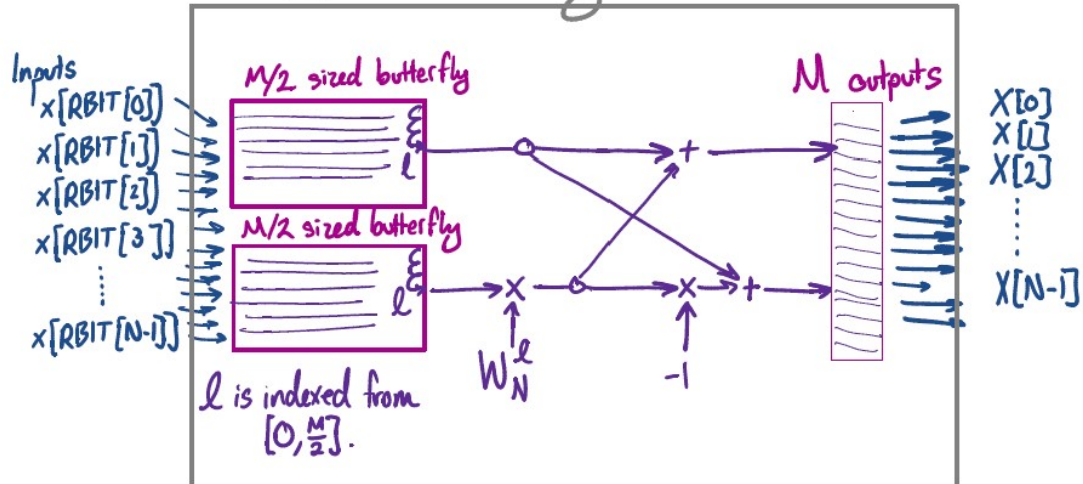 Inputs
x[RBIT[0]]
x[RBIT[1]]
x[RBIT[2]]
x[RBIT[3]]
x[RBIT[N-1]]
M/2 sized butterfly
l
M/2 sized butterfly
l
+
X
X
+
W_N^l
-1
l is indexed from
[0, M/2].
M outputs
X[0]
X[1]
X[2]
X[N-1]